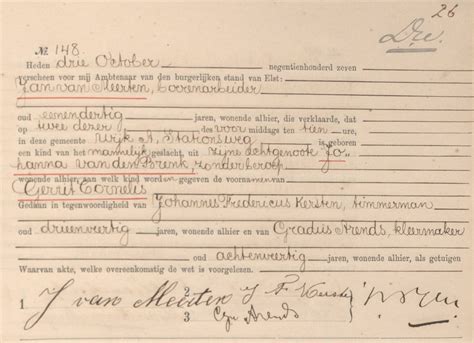 26
Dre.
№ 148.
Heden drie October negentienhonderd zeven
verscheen voor mij Ambtenaar van den burgerlijken stand van Elst:
Jan van Meerten, sporenarbeider
oud eenendertig jaren, wonende alhier, die verklaarde, dat
op twee dezer des voor middags ten tien ure,
in deze gemeente Wijk A, Stationsweg is geboren
een kind van het mannelijk geslacht, uit zijne echtgenoote Jo-
hanna van den Brenk, zonder beroep
wonende alhier, aan welk kind worden gegeven de voornamen van
Gerrit Cornelis
Gedaan in tegenwoordigheid van Johannis Fredericus Kersten, timmerman
oud drieenveertig jaren, wonende alhier en van Gradus Arends, kleermaker
oud achtenveertig jaren, wonende alhier, als getuigen
Waarvan akte, welke overeenkomstig de wet is voorgelezen.
1 J van Meerten 2 J F Kersten
3 Arends